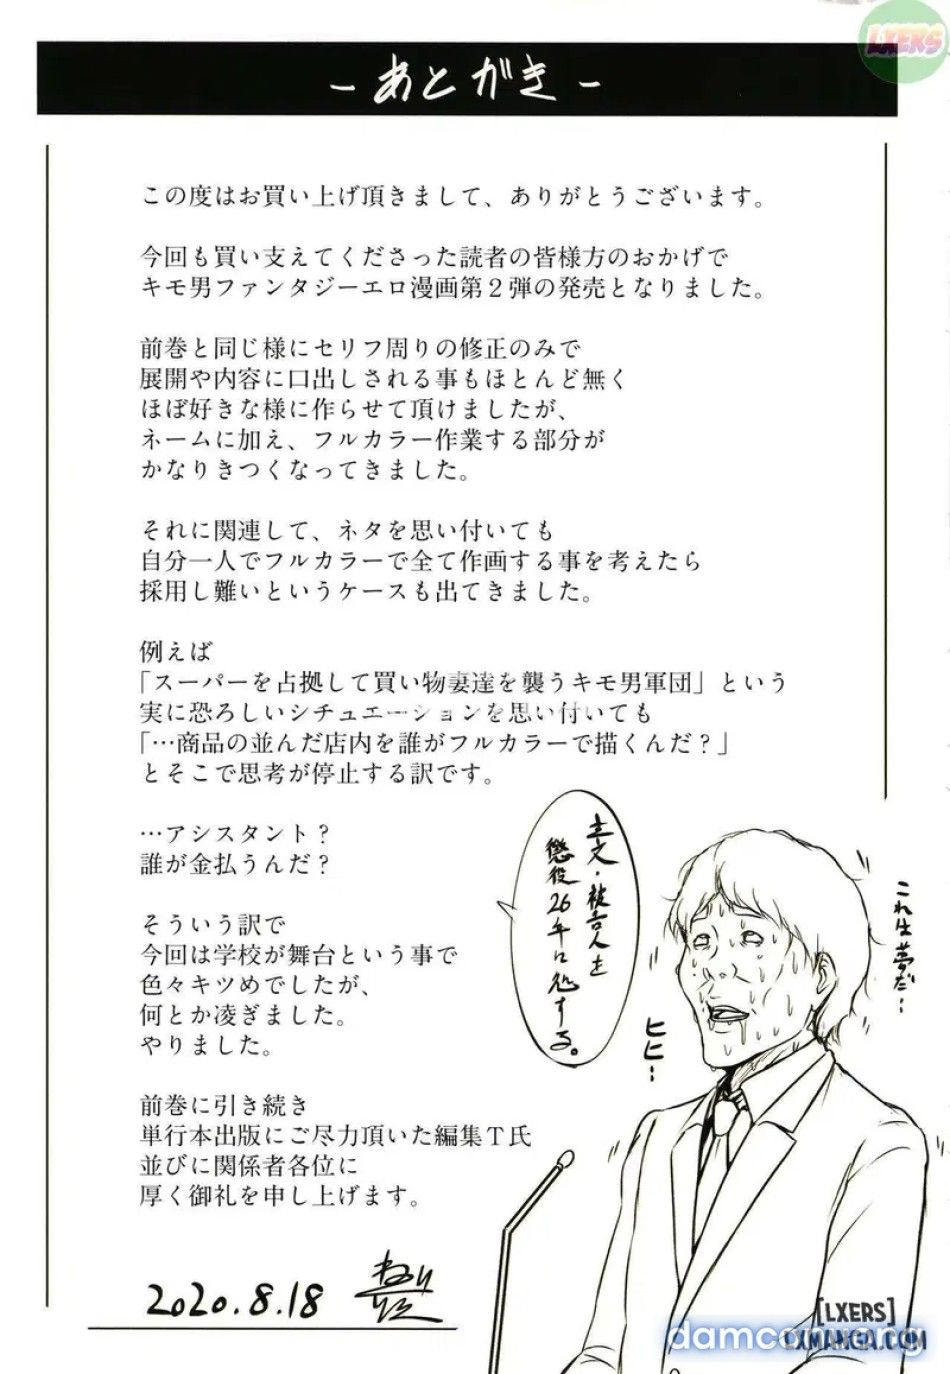 LXERS
- あとがき -
この度はお買い上げ頂きまして、ありがとうございます。
今回も買い支えてくださった読者の皆様方のおかげで
キモ男ファンタジーエロ漫画第２弾の発売となりました。
前巻と同じ様にセリフ周りの修正のみで
展開や内容に口出しされる事もほとんど無く
ほぼ好きな様に作らせて頂けましたが、
ネームに加え、フルカラー作業する部分が
かなりきつくなってきました。
それに関連して、ネタを思い付いても
自分一人でフルカラーで全て作画する事を考えたら
採用し難いというケースも出てきました。
例えば
「スーパーを占拠して買い物妻達を襲うキモ男軍団」という
実に恐ろしいシチュエーションを思い付いても
「…商品の並んだ店内を誰がフルカラーで描くんだ？」
とそこで思考が停止する訳です。
…アシスタント？
誰が金払うんだ？
そういう訳で
今回は学校が舞台という事で
色々キツめでしたが、
何とか凌ぎました。
やりました。
前巻に引き続き
単行本出版にご尽力頂いた編集Ｔ氏
並びに関係者各位に
厚く御礼を申し上げます。
2020.8.18
主文・被告人を
懲役26年に処する。
ヒヒ…
これ生夢だ…
[LXERS]
LXMANGA.COM